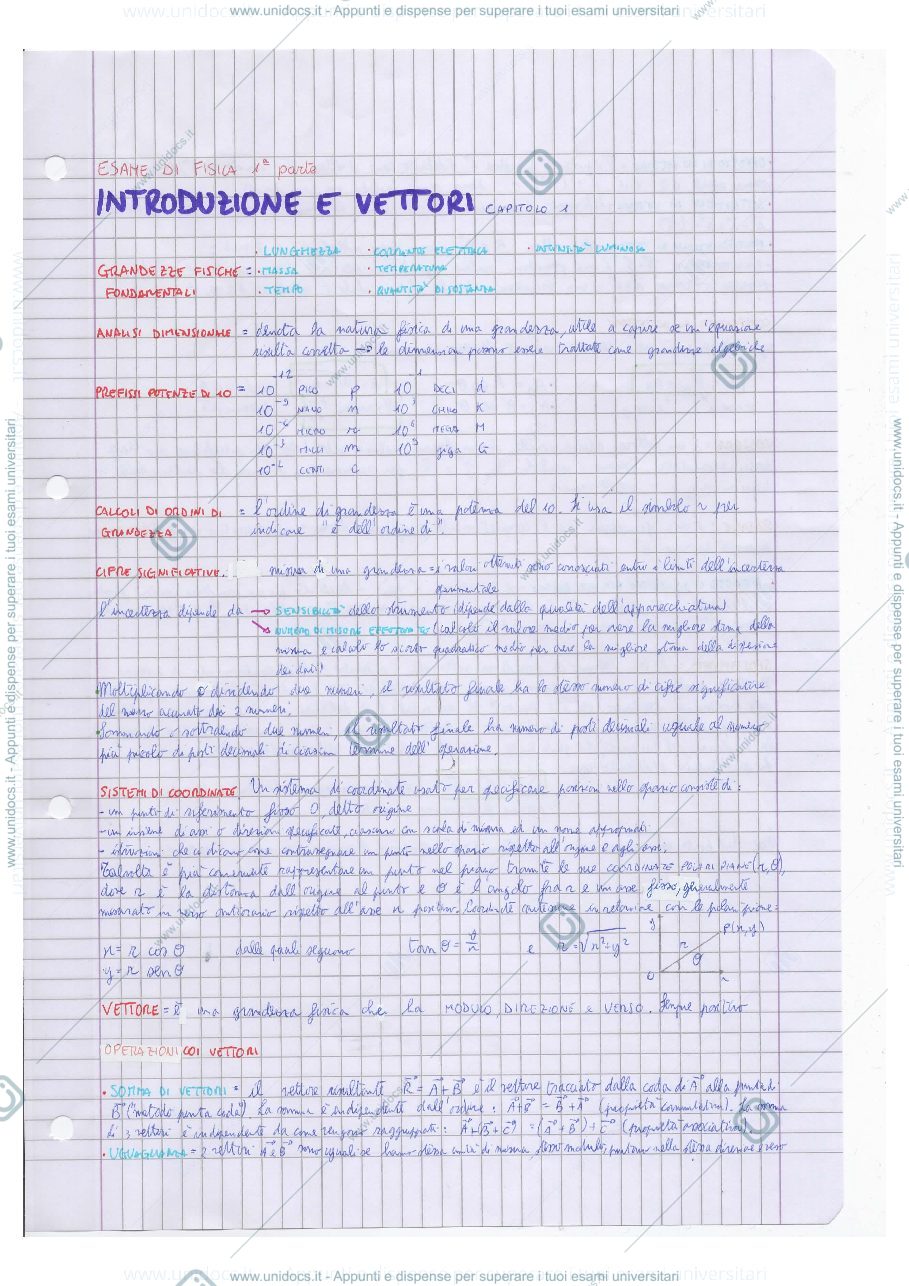 www.unidocs.it - Appunti e dispense per superare i tuoi esami universitari
ESAME DI FISICA 1ª parte
INTRODUZIONE E VETTORI CAPITOLO 1
· LUNGHEZZA · CORRENTE ELETTRICA · INTENSITÀ LUMINOSA
GRANDEZZE FISICHE = · MASSA · TEMPERATURA
FONDAMENTALI · TEMPO · QUANTITÀ DI SOSTANZA
ANALISI DIMENSIONALE = denota la natura fisica di una grandezza, utile a capire se un'equazione
risulta corretta → le dimensioni possono essere trattate come grandezze algebriche
PREFISSI POTENZE DI 10 = 10^-12 PICO p 10^-1 DECI d
10^-9 NANO n 10^3 CHILO K
10^-6 MICRO 10^6 MEGA M
10^-3 MILLI m 10^9 giga G
10^-2 CENTI c
CALCOLI DI ORDINI DI = l'ordine di grandezza è una potenza del 10. Si usa il simbolo ~ per
GRANDEZZA indicare "è dell'ordine di".
CIFRE SIGNIFICATIVE. misura di una grandezza = i valori ottenuti sono conosciuti entro i limiti dell'incertezza
sperimentale
l'incertezza dipende da → SENSIBILITÀ dello strumento (dipende dalla qualità dell'apparecchiatura)
→ NUMERO DI MISURE EFFETTUATE (calcolo il valore medio per avere la migliore stima della
misura e calcolo lo scarto quadratico medio per avere la migliore stima della dispersione
dei dati)
Moltiplicando o dividendo due numeri, il risultato finale ha lo stesso numero di cifre significative
del meno accurato dei 2 numeri.
Sommando o sottraendo due numeri, il risultato finale ha numero di posti decimali uguale al numero
più piccolo di posti decimali di ciascun termine dell'operazione.
SISTEMI DI COORDINATE Un sistema di coordinate usato per specificare posizioni nello spazio consiste di:
- un punto di riferimento fisso O, detto origine
- un insieme di assi o direzioni specificate, ciascuno con scala di misura ed un nome appropriati
- istruzioni che ci dicano come contrassegnare un punto nello spazio rispetto all'origine e agli assi.
Talvolta è più conveniente rappresentare un punto nel piano tramite le sue COORDINATE POLARI PIANE (r, θ),
dove r è la distanza dall'origine al punto e θ è l'angolo fra r e un asse fisso, generalmente
misurato in verso antiorario rispetto all'asse x positivo. Coordinate cartesiane in relazione con le polari piane:
x = r cos θ dalle quali seguono tan θ = y/x e r = √x²+y² y P(x,y)
y = r sen θ r θ O x
VETTORE = è una grandezza fisica che ha MODULO, DIREZIONE e VERSO. Sempre positivo
OPERAZIONI COI VETTORI
· SOMMA DI VETTORI = il vettore risultante R⃗ = A⃗ + B⃗ è il vettore tracciato dalla coda di A⃗ alla punta di
B⃗ ("metodo punta coda") La somma è indipendente dall'ordine: A⃗+B⃗ = B⃗+A⃗ (proprietà commutativa). La somma
di 3 vettori è indipendente da come vengono raggruppati: A⃗+(B⃗+C⃗) = (A⃗+B⃗)+C⃗ (proprietà associativa)
· UGUAGLIANZA = 2 vettori A⃗ e B⃗ sono uguali se hanno stessa unità di misura, stesso modulo, puntano nella stessa direzione e verso
www.unidocs.it - Appunti e dispense per superare i tuoi esami universitari